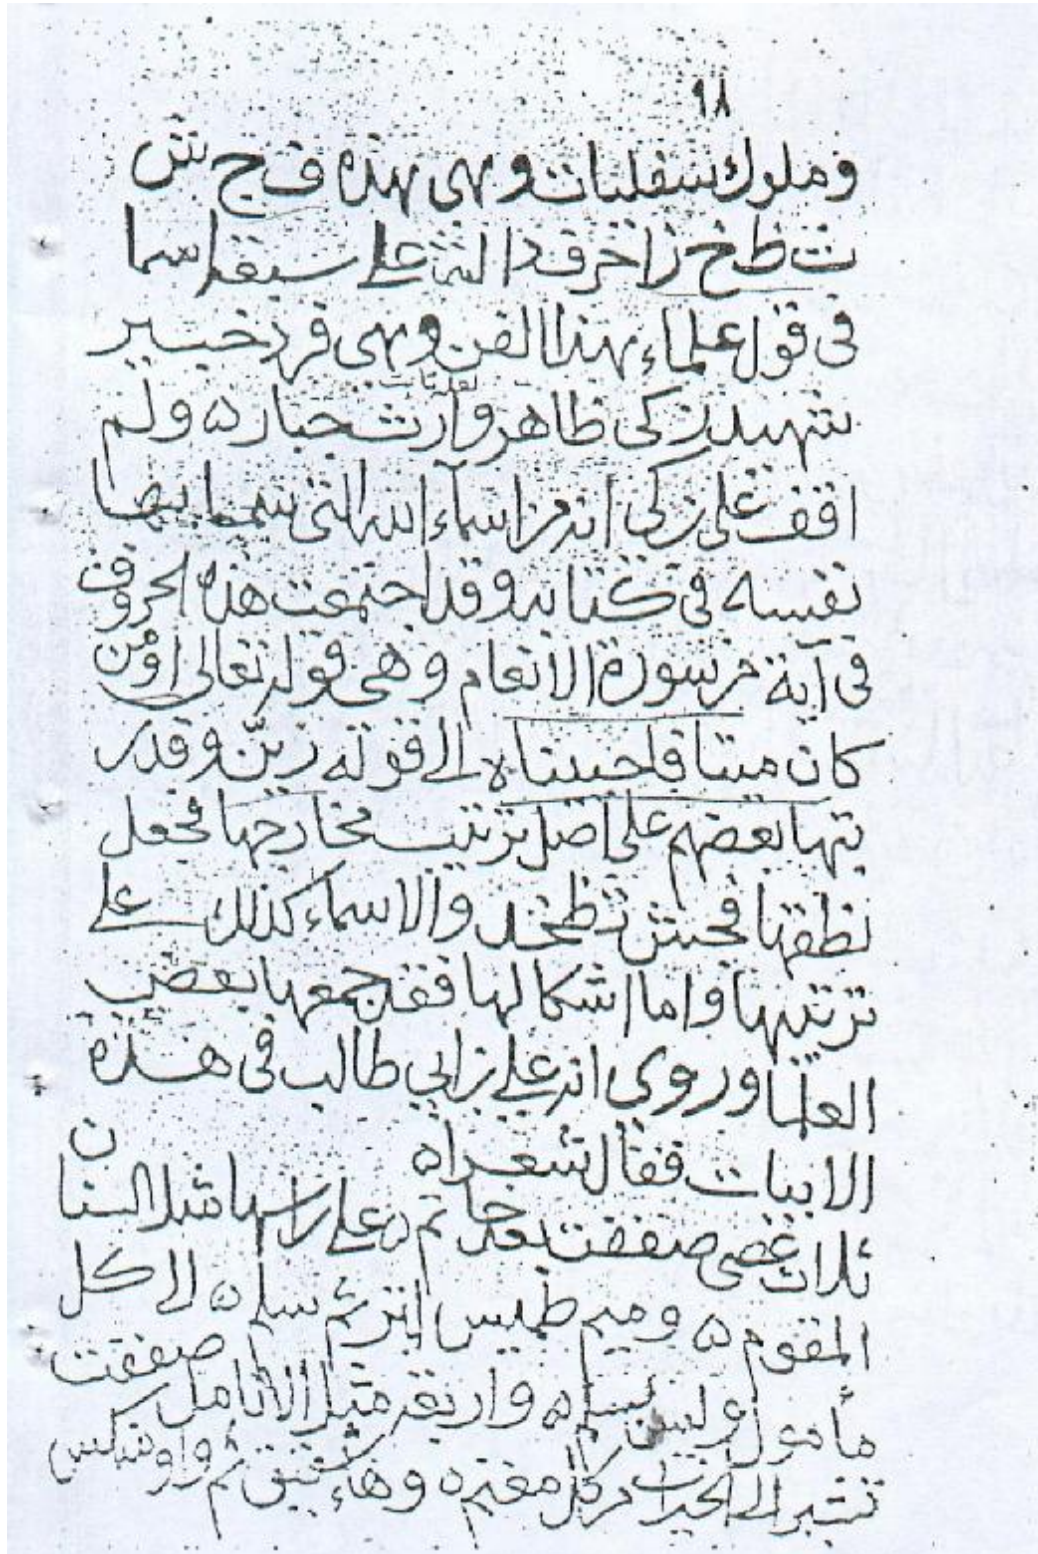 ٩٨
وملوك سفليات وهي هذه ف ج ش
ث ظ خ ز اخرف دالة على سبعة اسما
في قول علماء هذا الفن وهي فرد خبير
شهيد زكى ظاهر وارث جباره ولم
اقف على زكى انه من اسماء الله التى سما بها
نفسه في كتابه وقد اجتمعت هذه الحروف
في آية من سورة الانعام وهى قوله تعالى اومن
كان ميتا فاحييناه الى قوله زين وقد ر
تبها بعضهم على اصل ترتيب مخارجها فجعل
نطقها فجش ثظخز والاسماء كذلك على
ترتيبها واما اشكالها فقد جمعها بعض
العلما وروي انه علي بن ابي طالب في هذه
الابيات فقال شعراه
ثلاث عصى صففت بعد خاتم ه على راسها مثل السنان
المقوم ه وميم طميس ابتر ثم سلم ه الى كل
مأمول وليس بسلم ه واربعة مثل الانامل صففت
تشير الى الخيرات من كل مغنم ه وهاء شقيق ثم واو